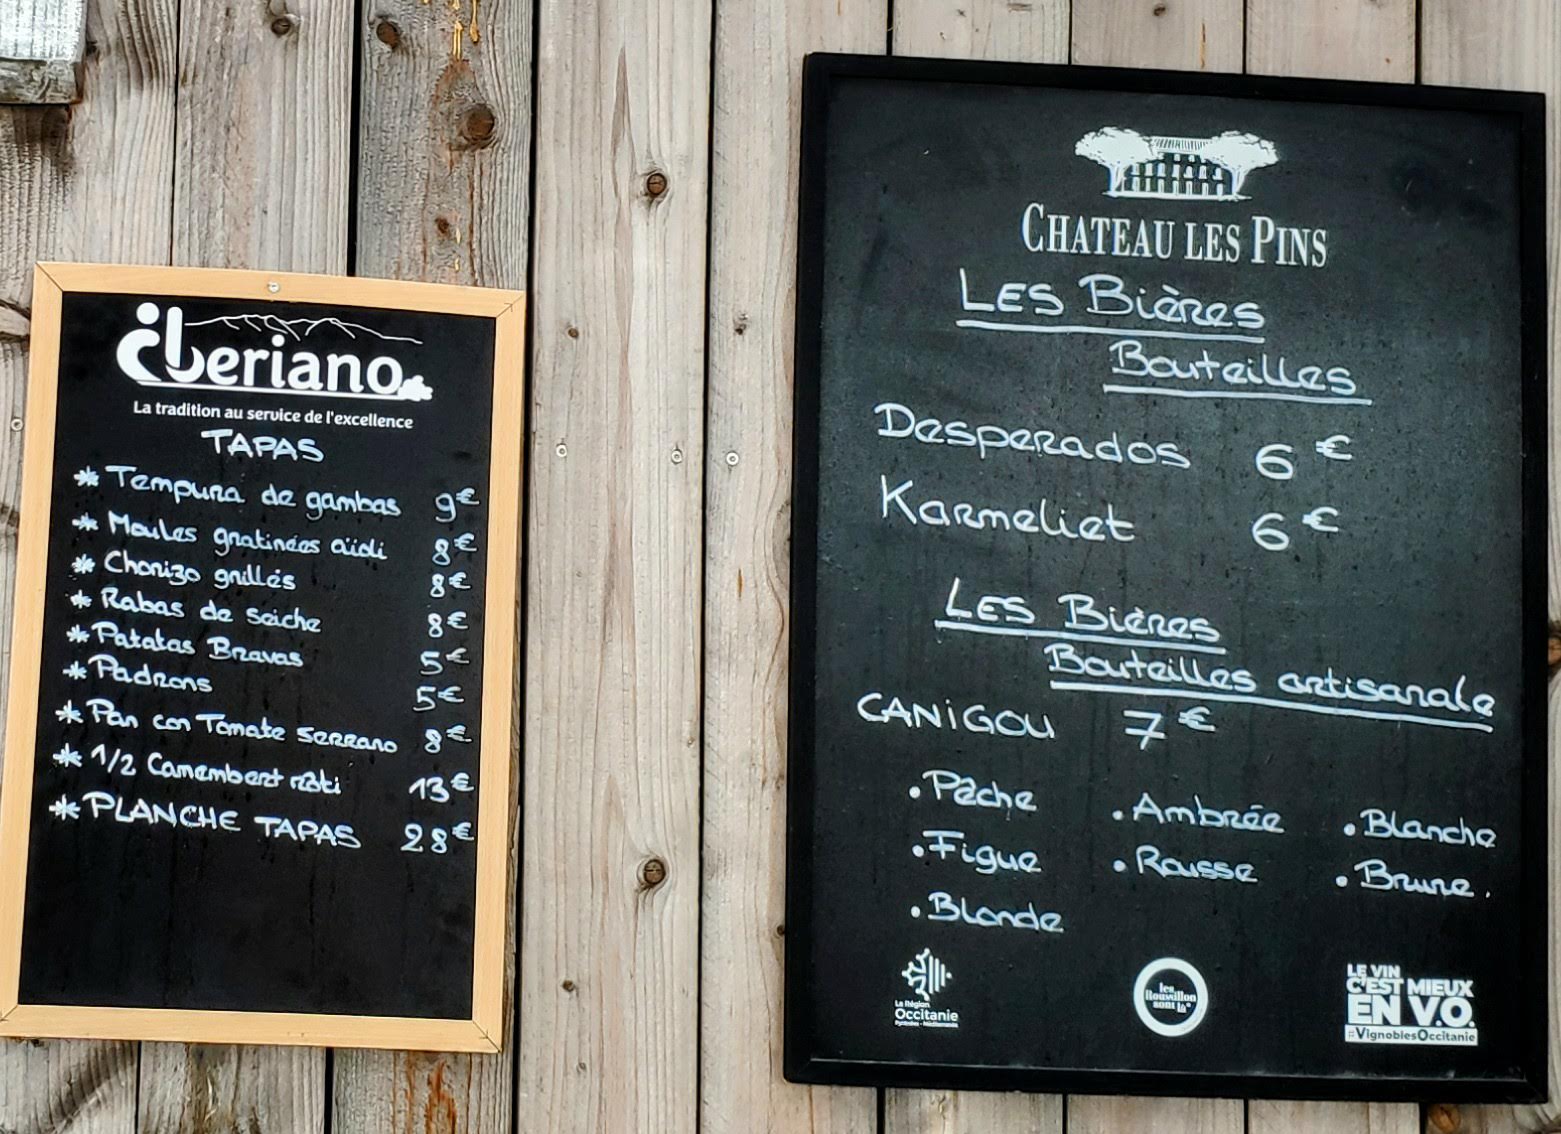 iberiano
La tradition au service de l'excellence
TAPAS
* Tempura de gambas 9€
* Moules gratinées aïoli 8€
* Chorizo grillés 8€
* Rabas de Seiche 8€
* Patatas Bravas 5€
* Padrons 5€
* Pan con Tomate serrano 8€
* 1/2 Camembert rôti 13€
* PLANCHE TAPAS 28€
CHATEAU LES PINS
LES Bières
Bouteilles
Desperados 6€
Karmeliet 6€
LES Bières
Bouteilles artisanale
CANIGOU 7€
• Pêche • Ambrée • Blanche
• Figue • Rousse • Brune.
• Blonde
La Région
Occitanie
Pyrénées - Méditerranée
les
Roussillon
sont là
LE VIN
C'EST MIEUX
EN V.O.
#VignoblesOccitanie